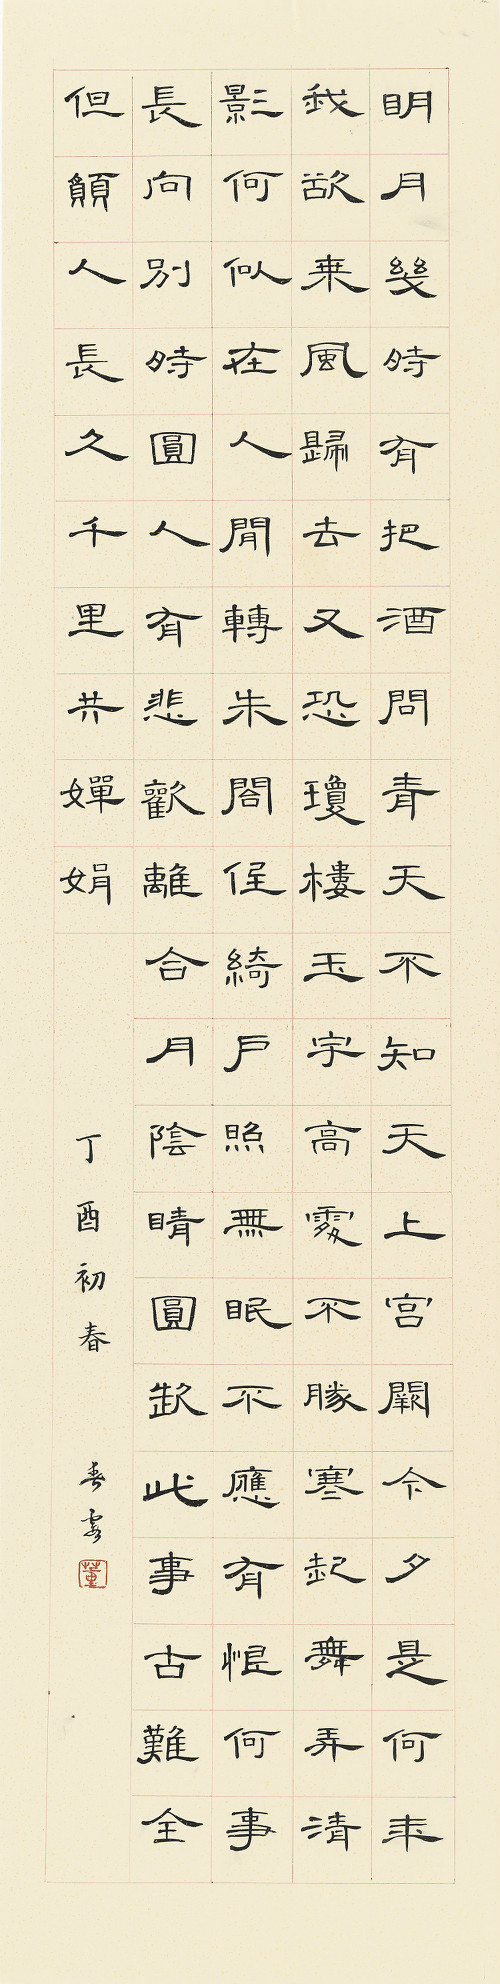 明月幾時有把酒問青天不知天上宫闕今夕是何年
我欲乗風歸去又恐瓊樓玉宇高處不勝寒起舞弄清
影何似在人間轉朱閣低綺戶照無眠不應有恨何事
長向別時圓人有悲歡離合月陰晴圓缺此事古難全
但願人長久千里共嬋娟
丁酉初春
春霞
董